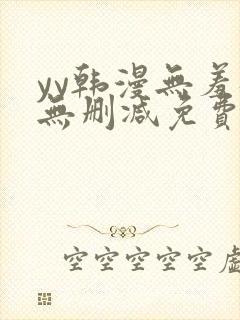 yy韩漫無羞
無删减免費
空空空空空虛